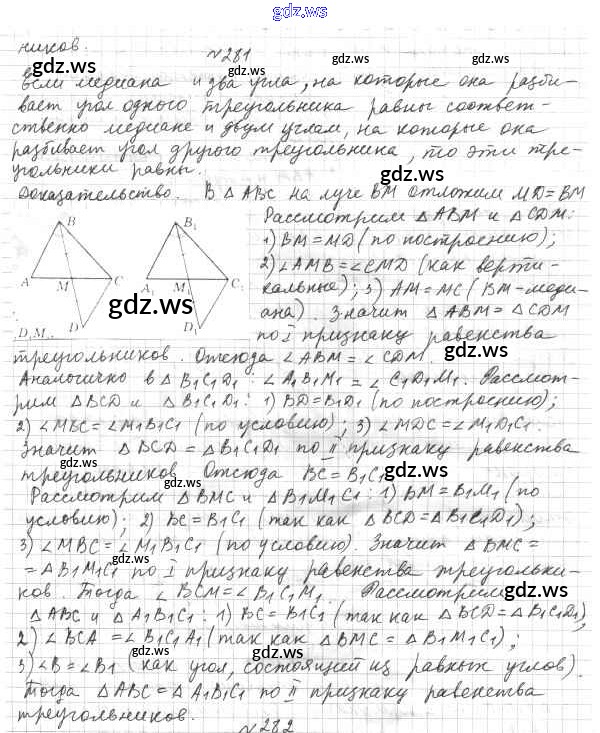 gdz.ws
ников.
№281
gdz.ws gdz.ws gdz.ws
Если медиана и два угла, на которые она разби-
вает угол одного треугольника равны соответ-
ственно медиане и двум углам, на которые она
разбивает угол другого треугольника, то эти тре-
угольники равны.
Доказательство. В △ ABC на луче BM отложим MD=BM
Рассмотрим △ ABM и △ CDM:
1) BM = MD (по построению);
2) ∠AMB = ∠CMD (как верти-
кальные); 3) AM = MC (BM-меди-
ана). Значит △ ABM = △ CDM
по I признаку равенства
B B₁
A M C A₁ M₁ C₁
D D₁
D₁M₁
gdz.ws gdz.ws
треугольников. Отсюда ∠ ABM = ∠ CDM.
Аналогично в △ B₁C₁D₁: ∠ A₁B₁M₁ = ∠ C₁D₁M₁. Рассмот-
рим △ BCD и △ B₁C₁D₁: 1) BD = B₁D₁ (по построению);
2) ∠ MBC = ∠ M₁B₁C₁ (по условию); 3) ∠ MDC = ∠ M₁D₁C₁.
Значит △ BCD = △ B₁C₁D₁ по II признаку равенства
треугольников. Отсюда BC = B₁C₁
gdz.ws gdz.ws
Рассмотрим △ BMC и △ B₁M₁C₁: 1) BM = B₁M₁ (по
условию); 2) BC = B₁C₁ (так как △ BCD = △ B₁C₁D₁);
3) ∠ MBC = ∠ M₁B₁C₁ (по условию). Значит △ BMC =
= △ B₁M₁C₁ по I признаку равенства треугольни-
ков. Тогда ∠ BCM = ∠ B₁C₁M₁. Рассмотрим
gdz.ws gdz.ws
△ ABC и △ A₁B₁C₁: 1) BC = B₁C₁ (так как △ BCD = △ B₁C₁D₁)
2) ∠ BCA = ∠ B₁C₁A₁ (так как △ BMC = △ B₁M₁C₁);
3) ∠B = ∠B₁ (как угол, состоящий из равных углов).
Тогда △ ABC = △ A₁B₁C₁ по II признаку равенства
треугольников.
gdz.ws gdz.ws gdz.ws
№282